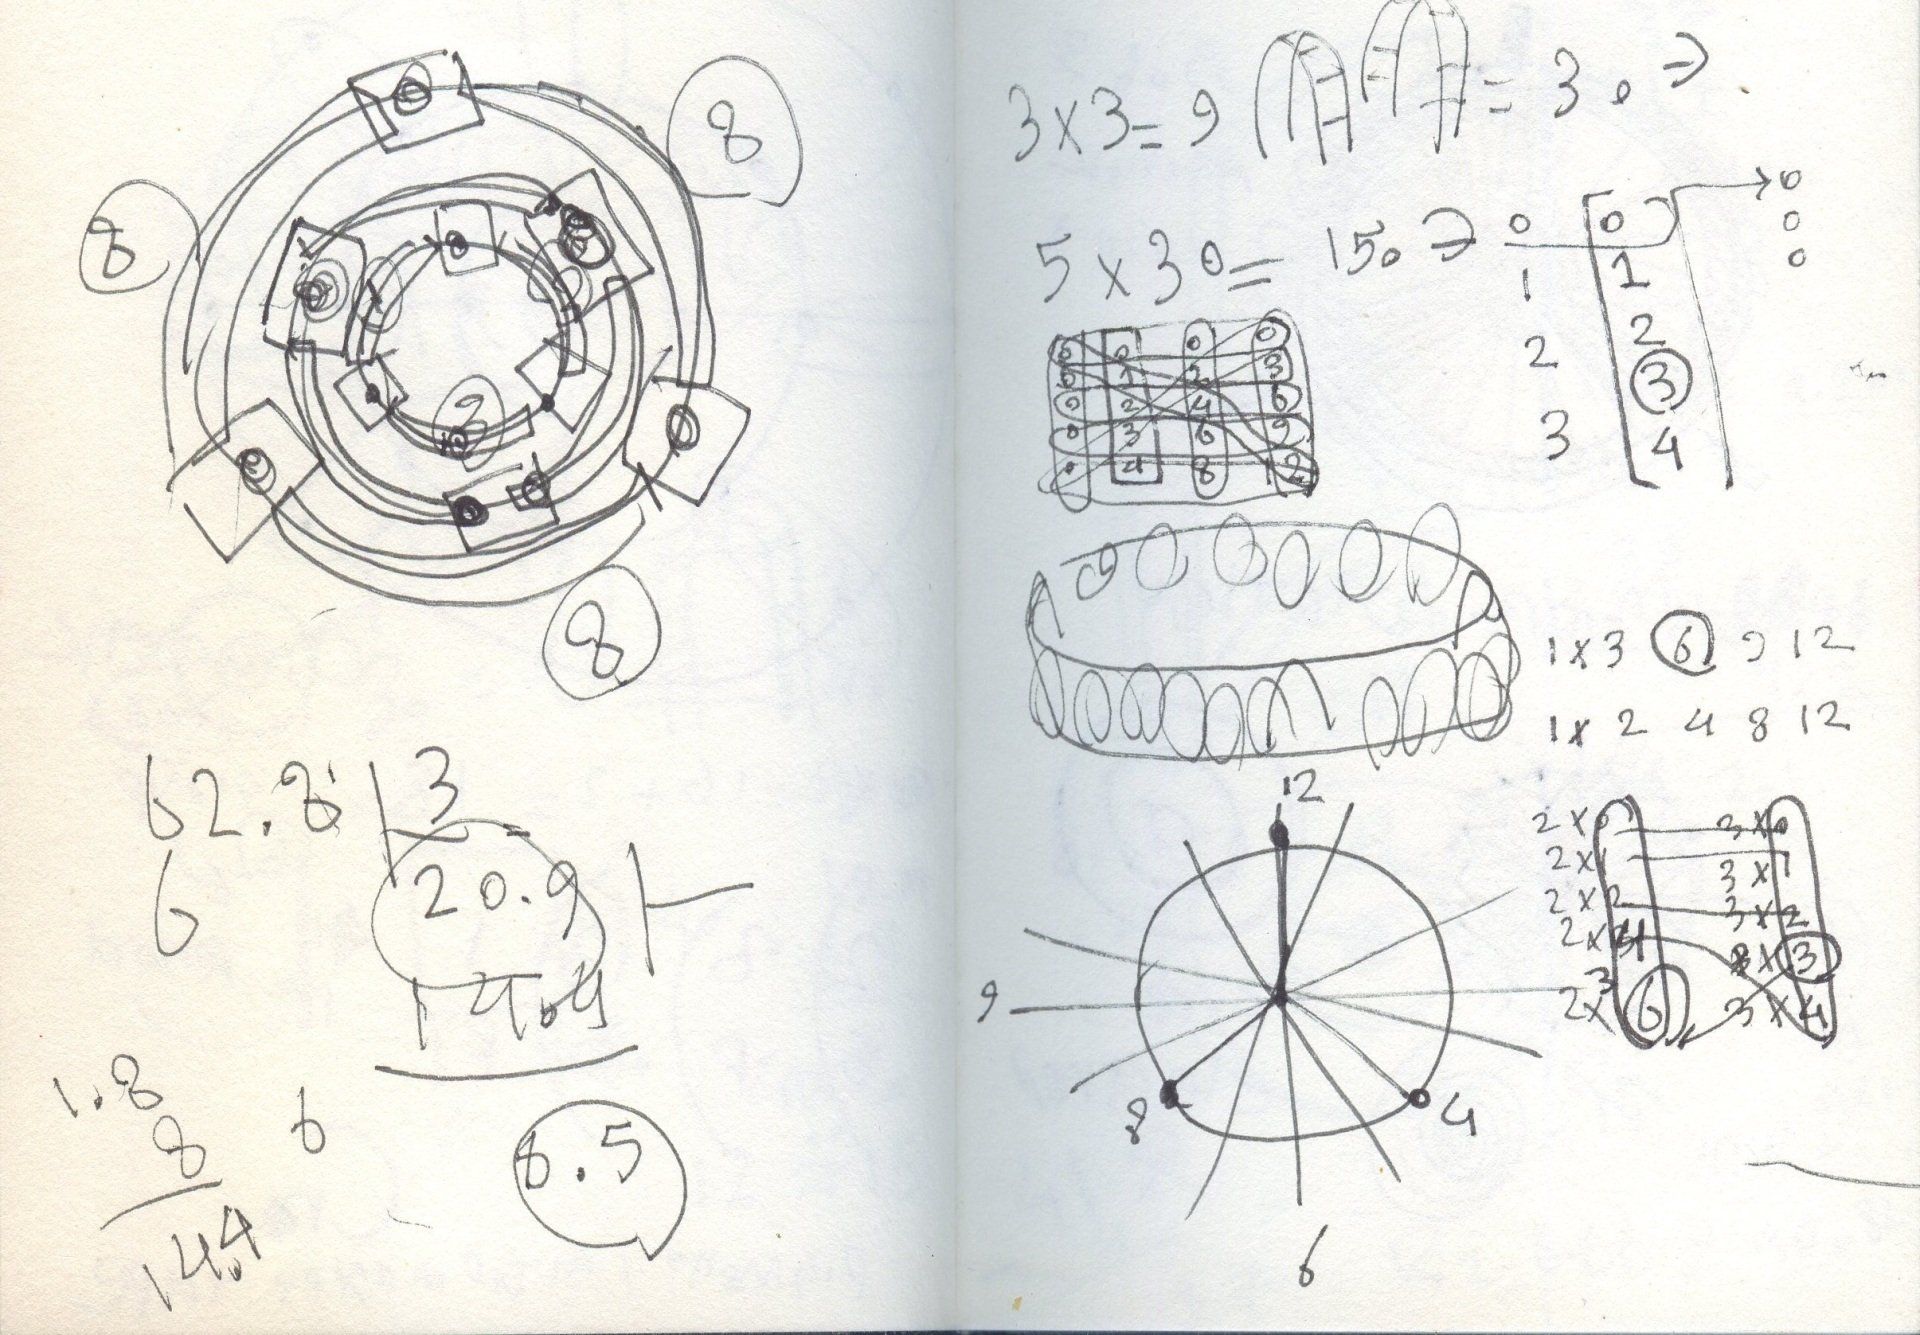 8
8
8
3
62.8 3
6
20.9
14.4
1.8
8
14.4
6
6.5
3x3=9 = 30 →
5 x 30 = 150 → 0 0 → 0
0
0
1 1
2 2
3 3
4
0 0 0 0
0 1 2 3
0 2 4 6
0 3 6 9
0 4 8 12
1x3 6 9 12
1x 2 4 8 12
12
9
8
4
6
2x0 3x0
2x1 3x1
2x2 3x2
3x3
3x4
2x 6